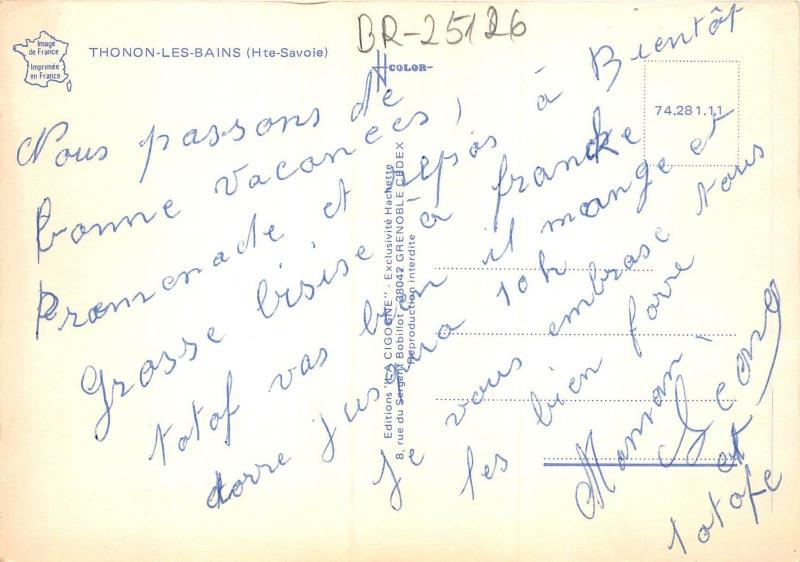 Image
de France
Imprimée
en France
THONON-LES-BAINS (Hte-Savoie)
BR-25126
COLOR
74.281.11
Editions "LA CIGOGNE" - Exclusivité Hachette
8, rue du Sergent Bobillot - 38042 GRENOBLE CEDEX
Reproduction interdite
Nous passons de
bonne vacances,
Promenade et repas à Bientôt
Grosse bisise a franck
totof vas bien il mange et
dorre jusqua 10h
Je vous embrase tous
les bien forre
Maman
et
totofe